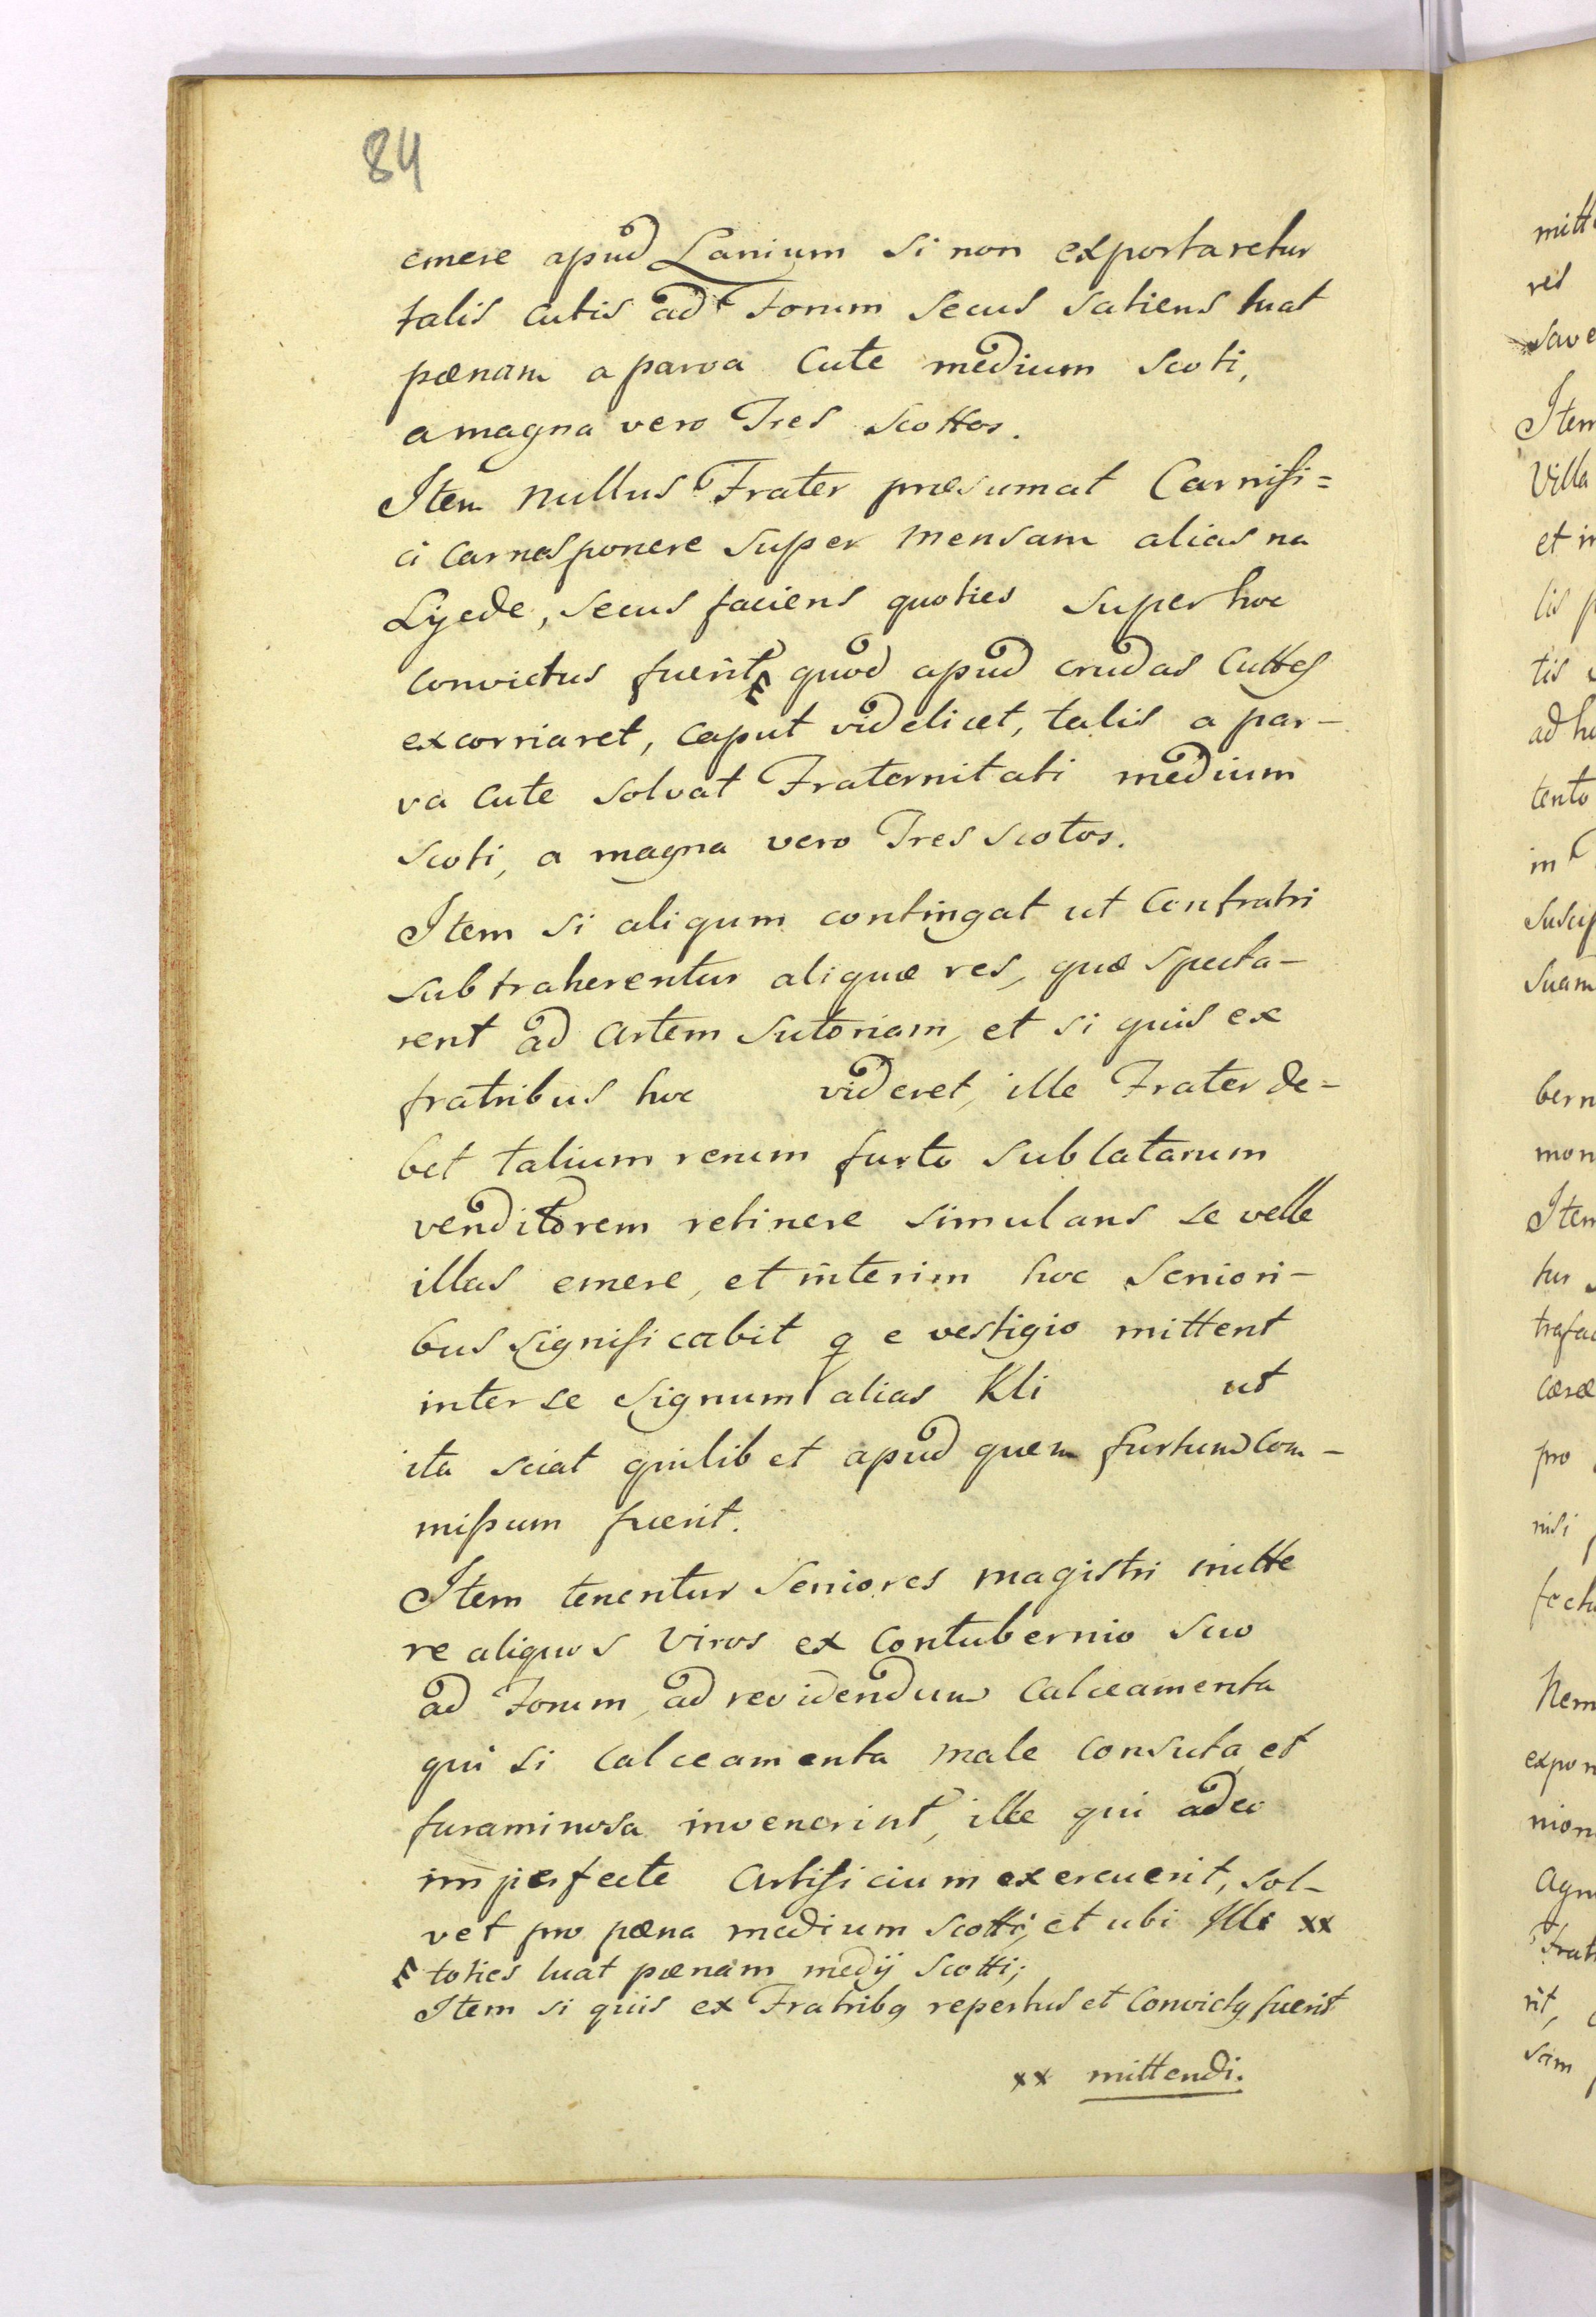 84
emere apud Lanium si non exportaretur
talis cutis ad Forum secus satiens luat
pœnam a parva Cute medium scoti,
a magna vero Tres scottos.
Item nullus Frater præsumat Carnifi=
ci carnes ponere super mensam alias na
Lyede, secus faciens quoties super hoc
convictus fuerit quod apud crudas Cuttes
excorriaret, caput videlicet, talis a par-
va cute solvat Fraternitati medium
scoti, a magna vero Tres scotos.
Item si aliqum contingat ut Confratri
subtraherentur aliquæ res, quæ specta-
rent ad Artem sutoriam, et si quis ex
fratribus hoc videret, ille Frater de=
bet talium rerum furto sublatarum
venditorem retinere simulans se velle
illas emere, et interim hoc seniori-
bus significabit q e vestigio mittent
inter se signum alias Kli ut
ita sciat quilibet apud quem furtum Com-
missum fuerit.
Item tenentur seniores magistri mitte
re aliquos viros ex Contubernio suo
ad Forum, ad revidendum calceamenta
qui si calceamenta male consuta et
furaminosa invenerint, ille qui adeo
imperfecte Artificium exercuerit, sol-
vet pro pœna medium scotti, et ubi Illi xx
toties luat pœnam medij scotti;
Item si quis ex Fratribq repertus et Convictq fuerit
xx mittendi.
mitt
res
save
Item
Villa
et in
lis p
tis
ad ho
tento
in
suscip
suam
bern
mon
Item
tur
trafac
cæræ
pro
nisi
fect
Nem
expon
nion
agn
Frat
rit,
sam